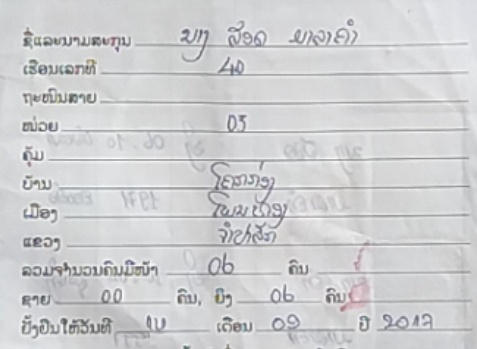 ຊື່ແລະນາມສະກຸນ ນາງ ສອດ ມາລາຄຳ
ເຮືອນເລກທີ 40
ຖະໜົນສາຍ
ໜ່ວຍ 05
ຄຸ້ມ
ບ້ານ
ເມືອງ
ແຂວງ ຈຳປາສັກ
ລວມຈຳນວນຄົນມີໜ້າ 06 ຄົນ
ຊາຍ 00 ຄົນ, ຍິງ 06 ຄົນ
ຢັ້ງຢືນໃຫ້ວັນທີ ເດືອນ 09 ປີ 2017